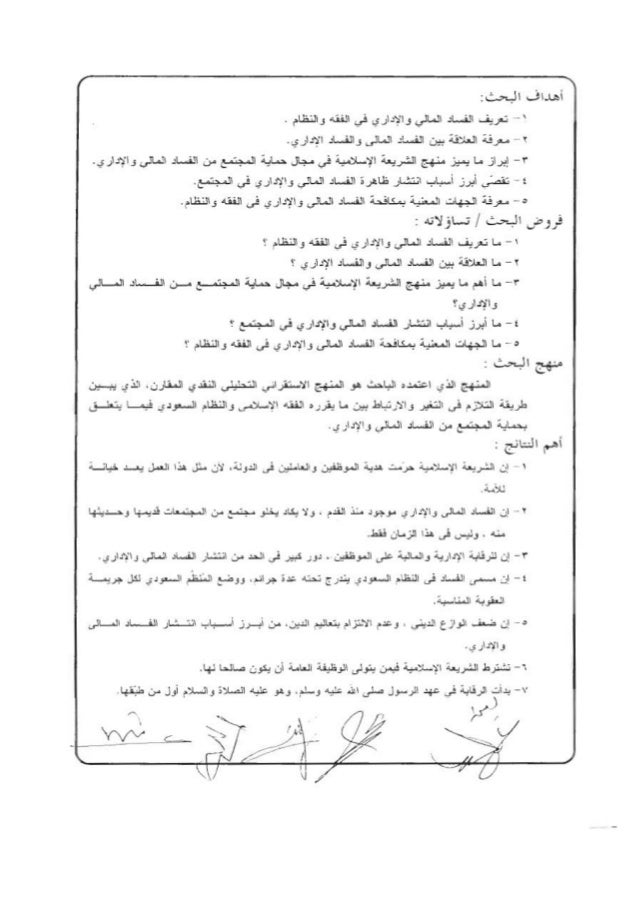 أهداف البحث:
١- تعريف الفساد المالي والإداري في الفقه والنظام .
٢- معرفة العلاقة بين الفساد المالى والفساد الإداري.
٣- إبراز ما يميز منهج الشريعة الإسلامية في مجال حماية المجتمع من الفساد المالى والإداري.
٤- تقصّى أبرز أسباب انتشار ظاهرة الفساد المالى والإداري في المجتمع.
٥- معرفة الجهات المعنية بمكافحة الفساد المالى والإداري فى الفقه والنظام.
فروض البحث / تساؤلاته :
١- ما تعريف الفساد المالى والإداري في الفقه والنظام ؟
٢- ما العلاقة بين الفساد المالى والفساد الإداري ؟
٣- ما أهم ما يميز منهج الشريعة الإسلامية في مجال حماية المجتمع من الفساد المالي
والإداري؟
٤- ما أبرز أسباب انتشار الفساد المالى والإداري في المجتمع ؟
٥- ما الجهات المعنية بمكافحة الفساد المالى والإداري فى الفقه والنظام ؟
منهج البحث :
المنهج الذي اعتمده الباحث هو المنهج الاستقرائي التحليلي النقدي المقارن، الذي يبين
طريقة التلازم فى التغير والارتباط بين ما يقرره الفقه الإسلامى والنظام السعودي فيما يتعلق
بحماية المجتمع من الفساد المالي والإداري.
أهم النتائج :
١- إن الشريعة الإسلامية حرّمت هدية الموظفين والعاملين فى الدولة، لأن مثل هذا العمل يعد خيانة
للأمة.
٢- إن الفساد المالى والإداري موجود منذ القدم ، ولا يكاد يخلو مجتمع من المجتمعات قديمها وحديثها
منه ، وليس فى هذا الزمان فقط.
٣- إن للرقابة الإدارية والمالية على الموظفين ، دور كبير فى الحد من انتشار الفساد المالى والإداري.
٤- إن مسمى الفساد فى النظام السعودي يندرج تحته عدة جرائم، ووضع المُنظّم السعودي لكل جريمة
العقوبة المناسبة.
٥- إن ضعف الوازع الدينى ، وعدم الالتزام بتعاليم الدين، من أبرز أسباب انتشار الفساد المالى
والإداري.
٦- تشترط الشريعة الإسلامية فيمن يتولى الوظيفة العامة أن يكون صالحا لها.
٧- بدأت الرقابة في عهد الرسول صلى الله عليه وسلم، وهو عليه الصلاة والسلام أول من طبّقها.